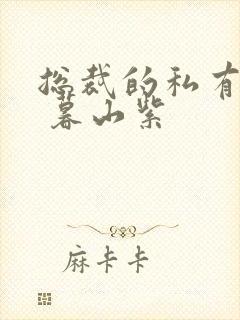 总裁的私有
暮山紫
麻卡卡